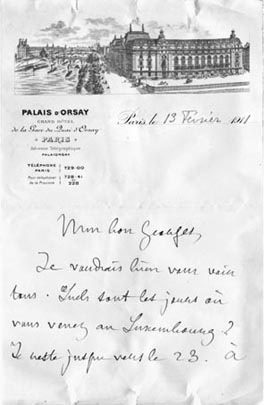 PALAIS D'ORSAY
GRAND HÔTEL
de la Gare du Quai d'Orsay
PARIS
Adresse Télégraphique
PALAIORSAY
TÉLÉPHONE
PARIS
729-00
728-41
228
de la Province
Paris, le 13 Février 1911
Mon bon Georges,
Je voudrais bien vous voir
tous. Quels sont les jours où
vous venez au Luxembourg ?
Je reste jusque vers le 23. à